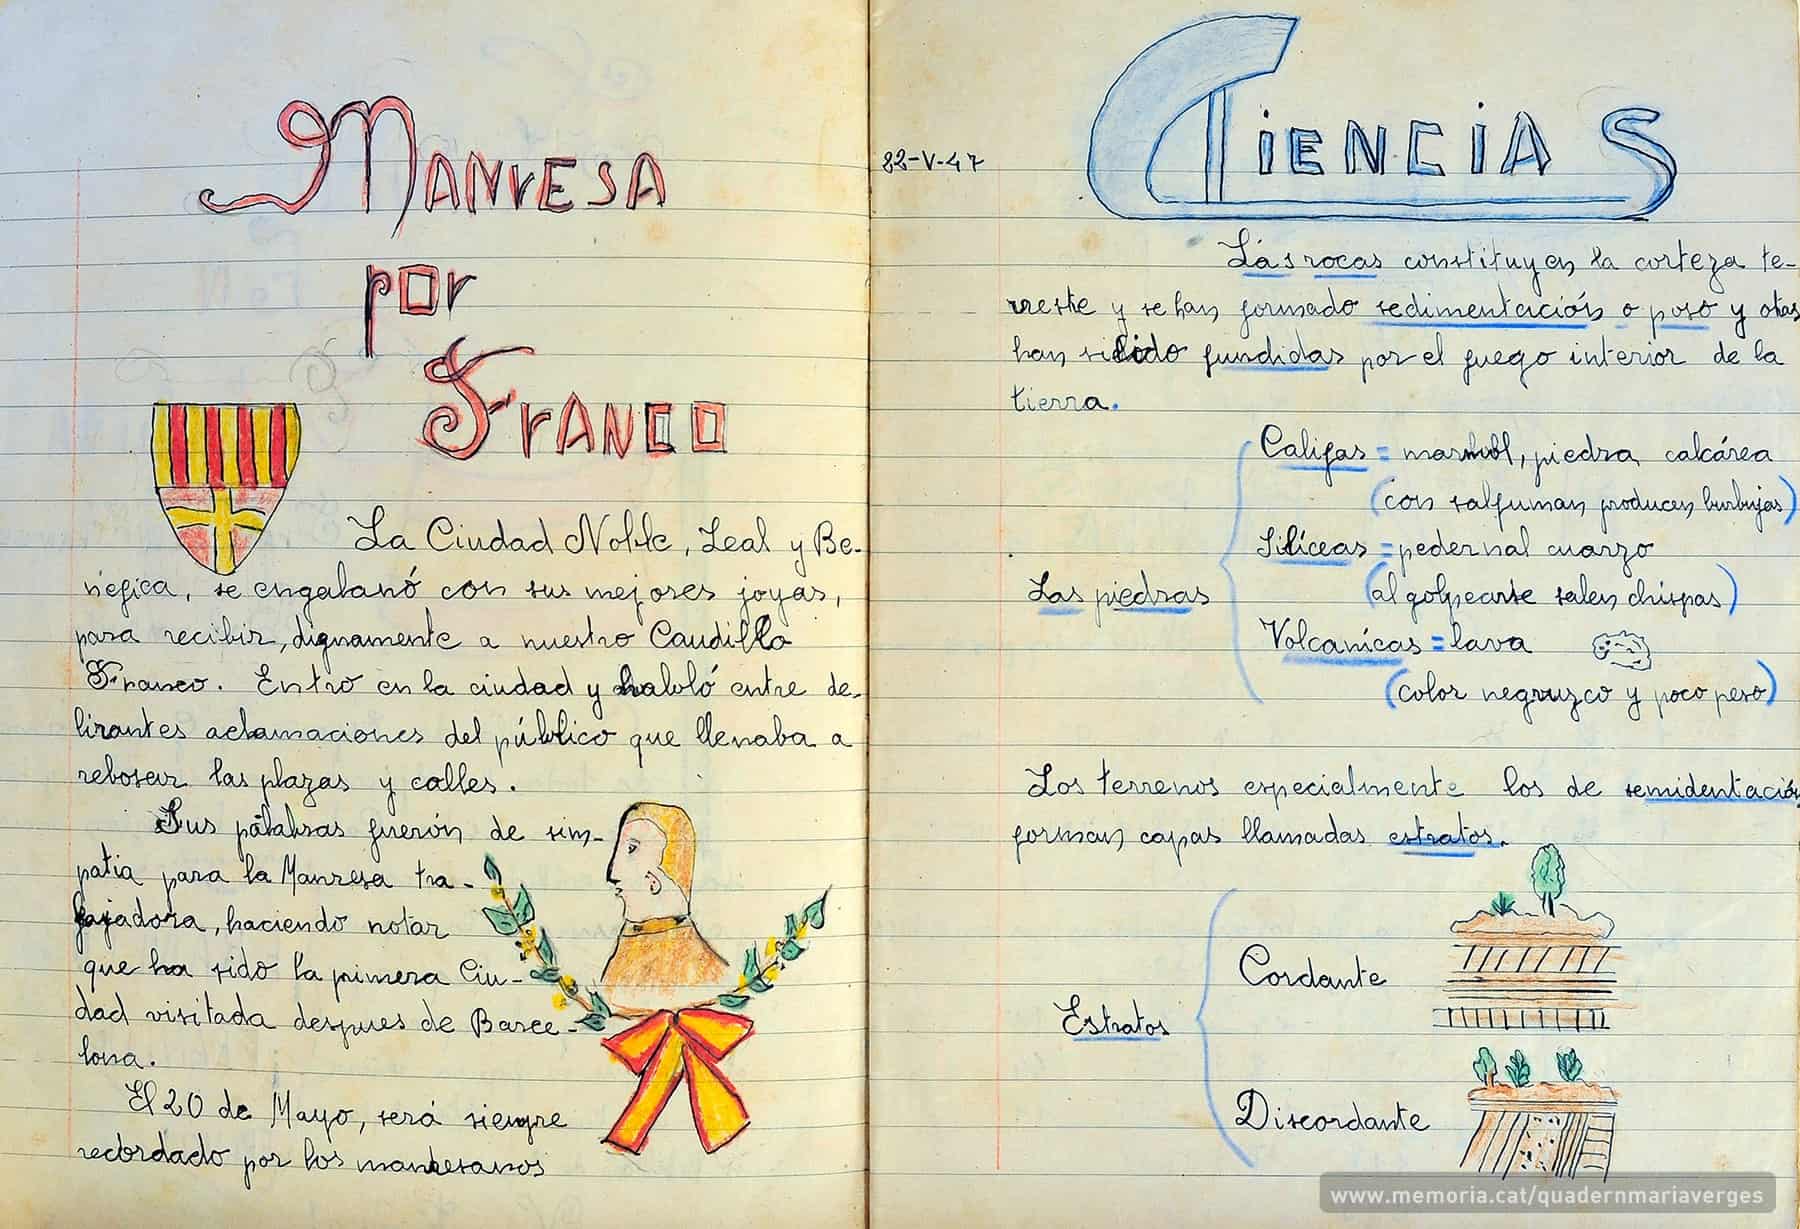 Manresa
por
Franco
La Ciudad Noble, Leal y Be-
néfica, se engalanó con sus mejores joyas,
para recibir, dignamente a nuestro Caudillo
Franco. Entro en la ciudad y habló entre de-
lirantes aclamaciones del público que llenaba a
rebosar las plazas y calles.
Sus palabras fuerón de sim-
patia para la Manresa tra-
bajadora, haciendo notar
que ha sido la primera Ciu-
dad visitada despues de Barce-
lona.
El 20 de Mayo, será siempre
recordado por los manresanos
22-V-47
CiENCiAS
Las rocas constituyen la corteza te-
rrestre y se han formado sedimentación o poso y otras
han sido fundidas por el fuego interior de la
tierra.
Las piedras
Califas = marmol, piedra calcárea
(con salfuman producen burbujas)
Silíceas = pedernal cuarzo
(al golpearse salen chispas)
Volcanícas = lava
(color negruzco y poco peso)
Los terrenos especialmente los de semidentación
forman capas llamadas estratos.
Estratos
Cordante
Discordante
www.memoria.cat/quadernmariaverges